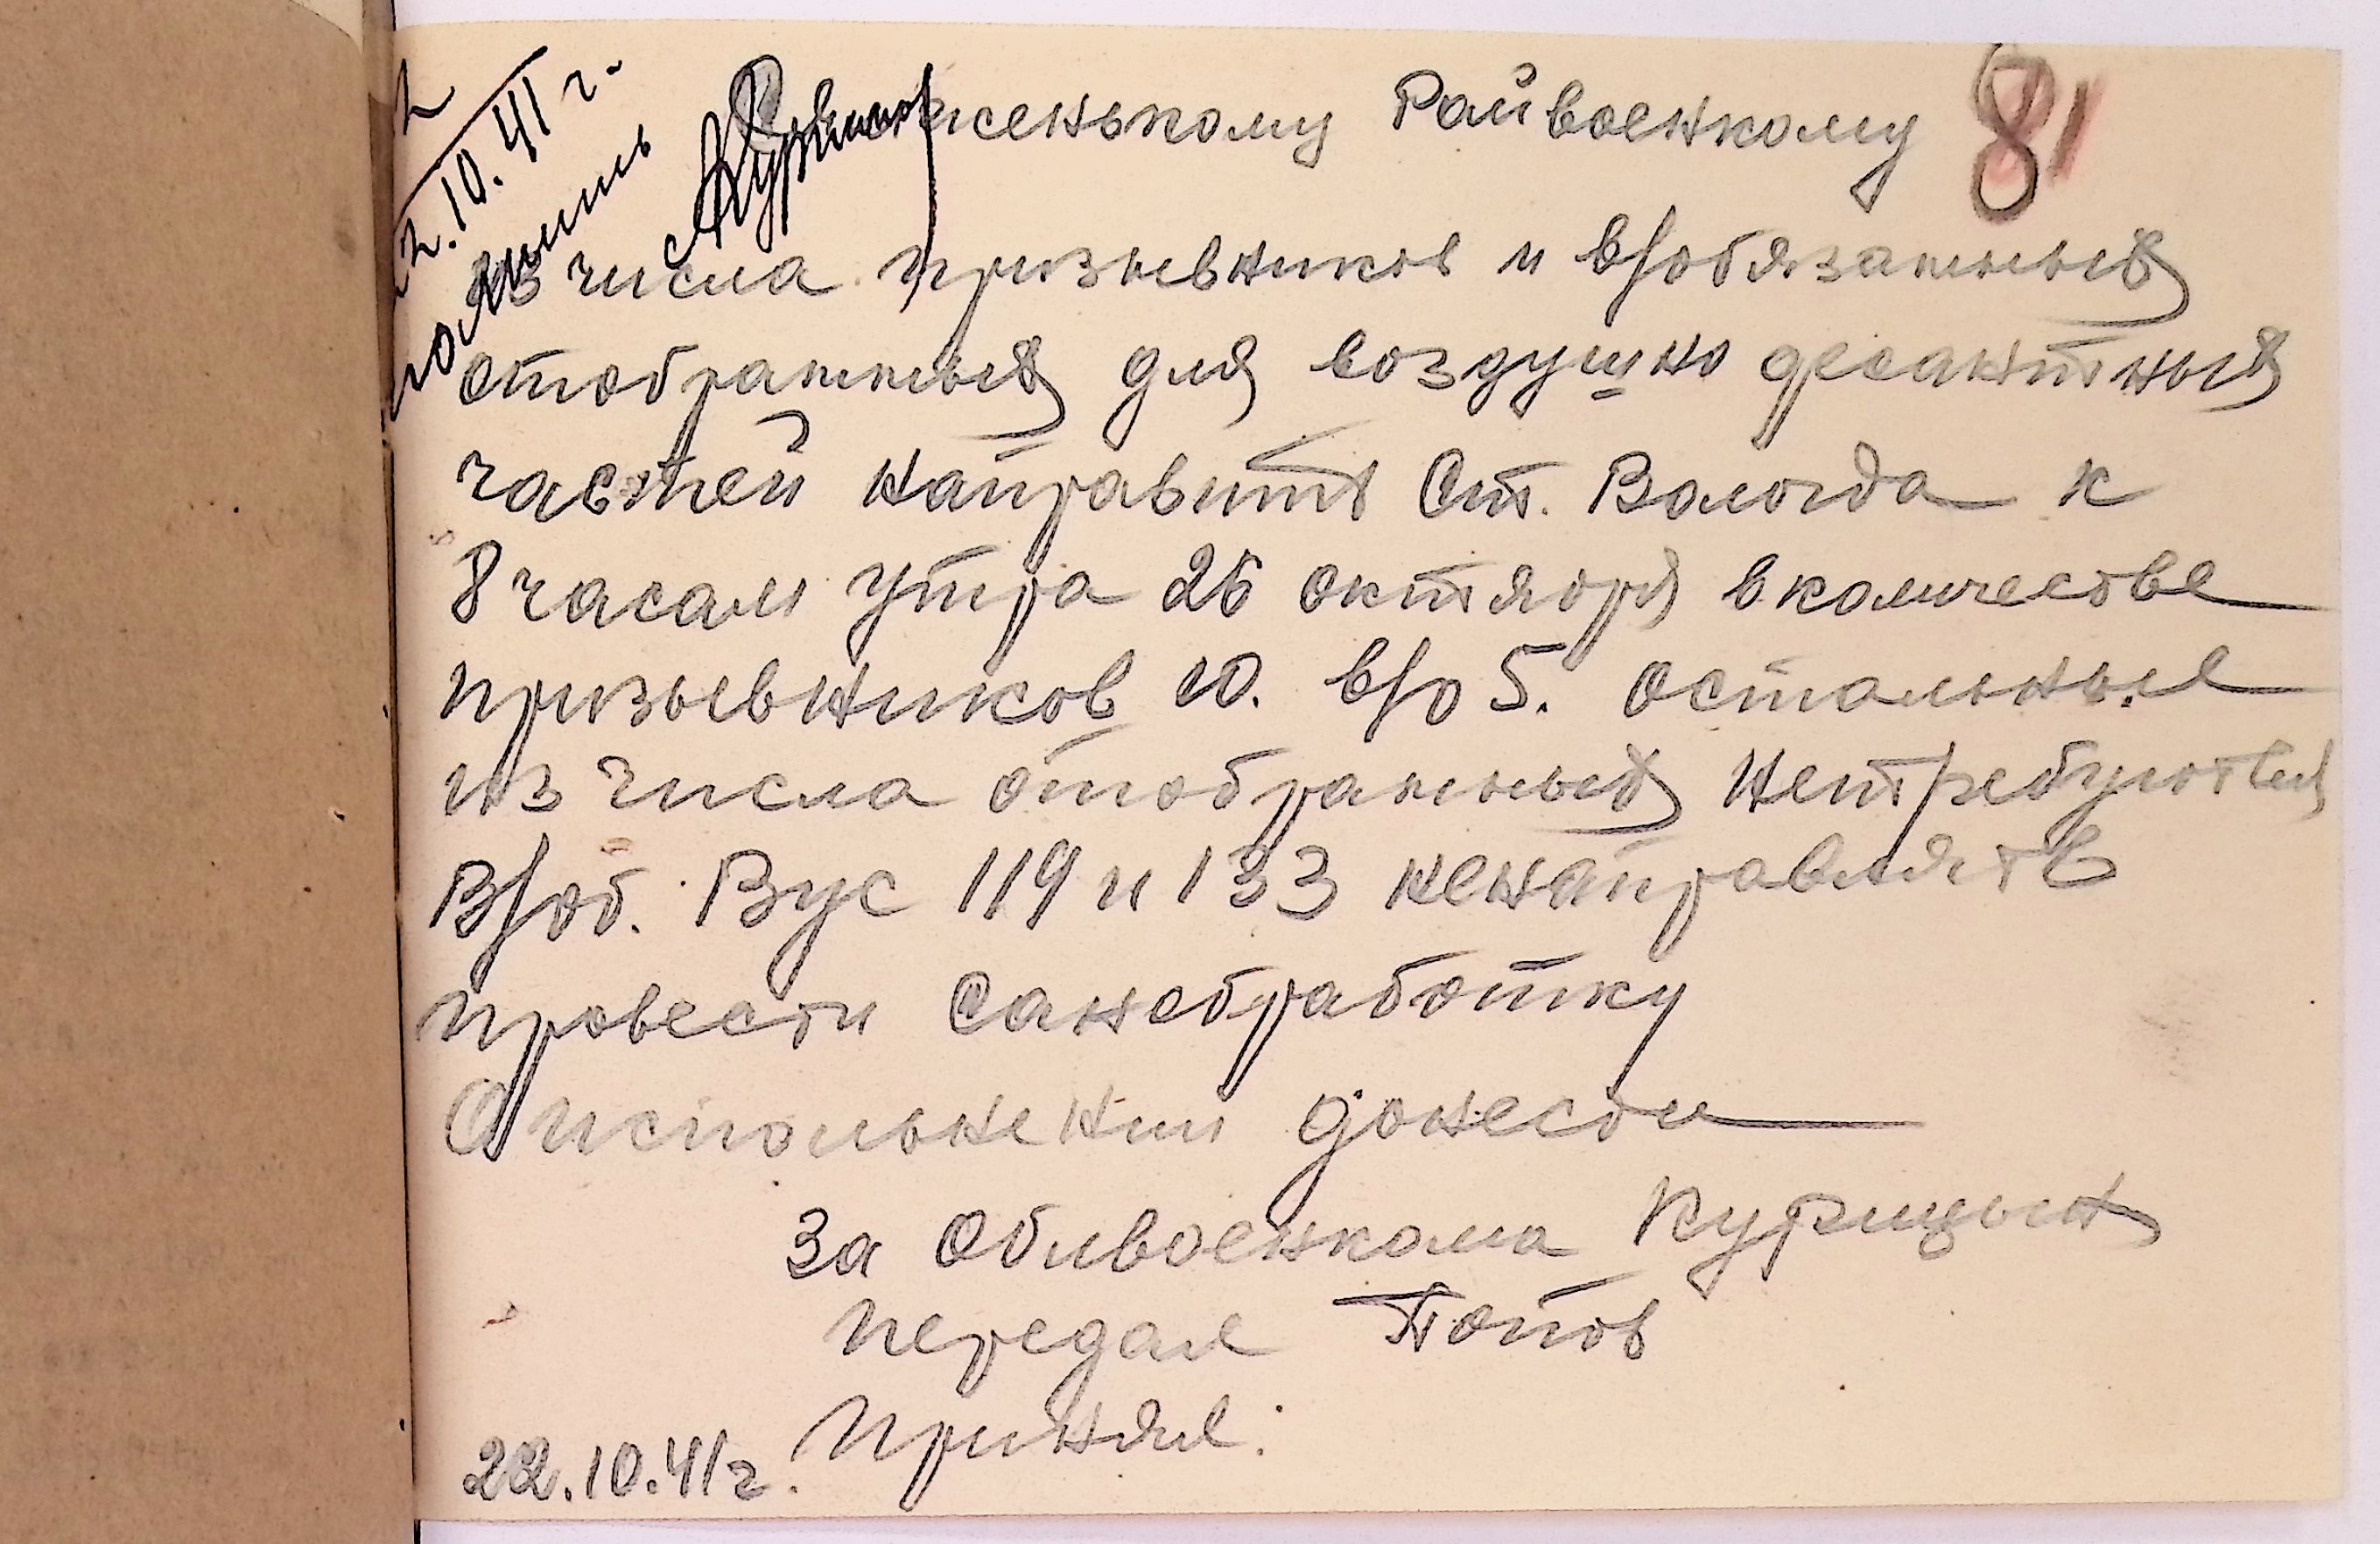 22.10.41 г.
Райвоенкому
81
из числа призывников и в/обязанных
отобранных для воздушно десантных
частей направить Ст. Вологда к
8 часам утра 26 октября в количестве
призывников 10. в/о 5. остальные
из числа отобранных нетребуются
В/об. Вус 119 и 133 ненаправлять
провести Санобработку
О исполнении донести
За Облвоенкома Курицын
передал Попов
Принял:
22.10.41 г.